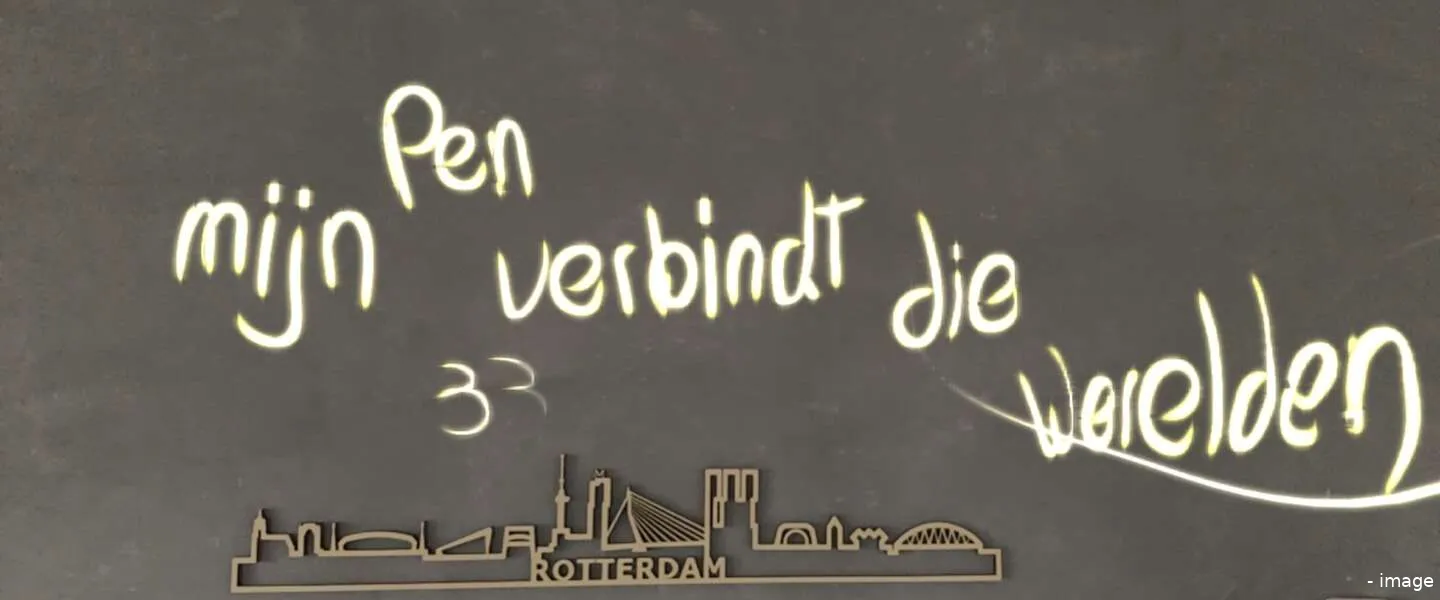 mijn Pen verbindt die werelden
33
ROTTERDAM
- image